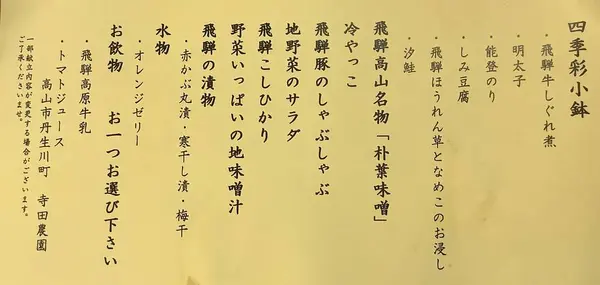 四季彩小鉢
・飛騨牛しぐれ煮
・明太子
・能登のり
・しみ豆腐
・飛騨ほうれん草となめこのお浸し
・汐鮭
飛騨高山名物「朴葉味噌」
冷やっこ
飛騨豚のしゃぶしゃぶ
地野菜のサラダ
飛騨こしひかり
野菜いっぱいの地味噌汁
飛騨の漬物
・赤かぶ丸漬・寒干し漬・梅干
水物
・オレンジゼリー
お飲物 お一つお選び下さい
・飛騨高原牛乳
・トマトジュース
高山市丹生川町 寺田農園
一部献立内容が変更する場合がございます。
ご了承くださいませ。